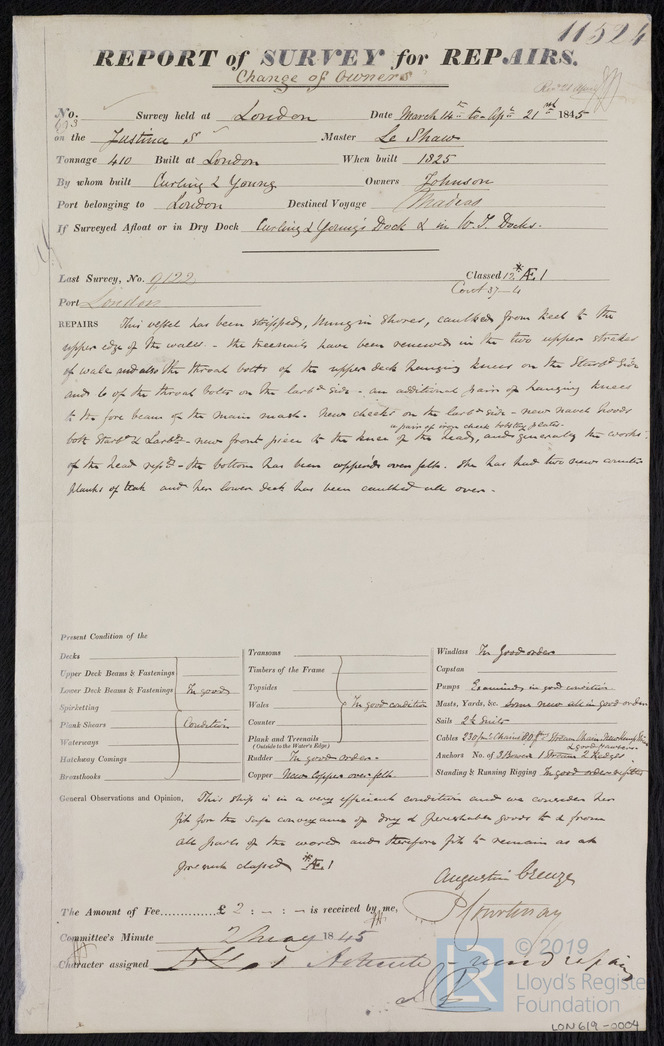 11524
REPORT of SURVEY for REPAIRS.
Change of Owners
No. 193 Survey held at London Date March 14th to Apl. 21st 1845
on the Justina S Master Le Shaw
Tonnage 410 Built at London When built 1825
By whom built Curling & Young Owners Johnson
Port belonging to London Destined Voyage Madras
If Surveyed Afloat or in Dry Dock Curling & Young's Dock & in W. I. Docks.
Last Survey, No. 9122 Classed 12 *Æ 1
Port London Cont 37-4
REPAIRS This vessel has been stripped, hung in shores, caulked from keel to the
upper edge of the wales. - the treenails have been renewed in the two upper strakes
of wale and also the throat bolts of the upper deck hanging knees on the Starbd side
and 6 of the throat bolts on the larbd side - an additional pair of hanging knees
to the fore beam of the main mast. New cheeks on the larbd side - new navel hoods
a pair of iron cheek bobstay plates.
both Starbd & Larbd - new front piece to the knee of the heads, and generally the works
of the head repd. - the bottom has been coppered over felt. She has had two new counter
planks of teak and her lower deck has been caulked all over.
Present Condition of the
Decks
Upper Deck Beams & Fastenings
Lower Deck Beams & Fastenings In good
Spirketting
Plank Shears Condition
Waterways
Hatchway Comings
Breasthooks
Transoms
Timbers of the Frame
Topsides
Wales In good condition
Counter
Plank and Treenails
(Outside to the Water's Edge)
Rudder In good order.
Copper New Copper over felt.
Windlass In Good order
Capstan
Pumps Examined in good condition
Masts, Yards, &c. Some new all in good order
Sails 2½ Suits
Cables 230 fms Chains 80 fs Stream Chain, New Hemp
& good Hawsers
Anchors No. of 3 Bower 1 Stream 2 Kedges
Standing & Running Rigging In good order & fitted
General Observations and Opinion, This ship is in a very efficient condition and we consider her
fit for the safe conveyance of dry & perishable goods to & from
all parts of the world and therefore fit to remain as at
present classed *Æ 1
Augustin Creuze
P Courtenay
The Amount of Fee............ £ 2 : - : - is received by me,
Committee's Minute 2 May 1845
Character assigned
© 2019
Lloyd's Register
Foundation
LON619-0004